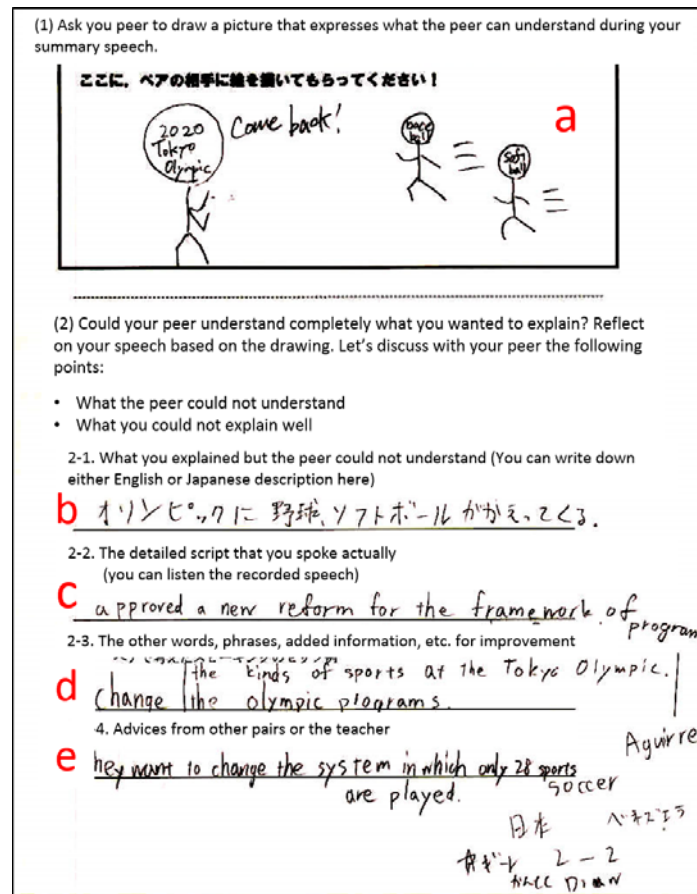 (1) Ask you peer to draw a picture that expresses what the peer can understand during your
summary speech.
ここに、ペアの相手に絵を描いてもらってください!
2020
Tokyo
Olympic
Come back!
base
ball
soft
ball
a
(2) Could your peer understand completely what you wanted to explain? Reflect
on your speech based on the drawing. Let's discuss with your peer the following
points:
• What the peer could not understand
• What you could not explain well
2-1. What you explained but the peer could not understand (You can write down
either English or Japanese description here)
b オリンピックに野球、ソフトボールがかえってくる.
2-2. The detailed script that you spoke actually
(you can listen the recorded speech)
c approved a new reform for the framework of
program
2-3. The other words, phrases, added information, etc. for improvement
the kinds of sports at the Tokyo Olympic.
d change the olympic programs.
-4. Advices from other pairs or the teacher
Aguirre
e hey want to change the system in which only 28 sports
are played.
soccer
日本 ベネズエラ
2-2